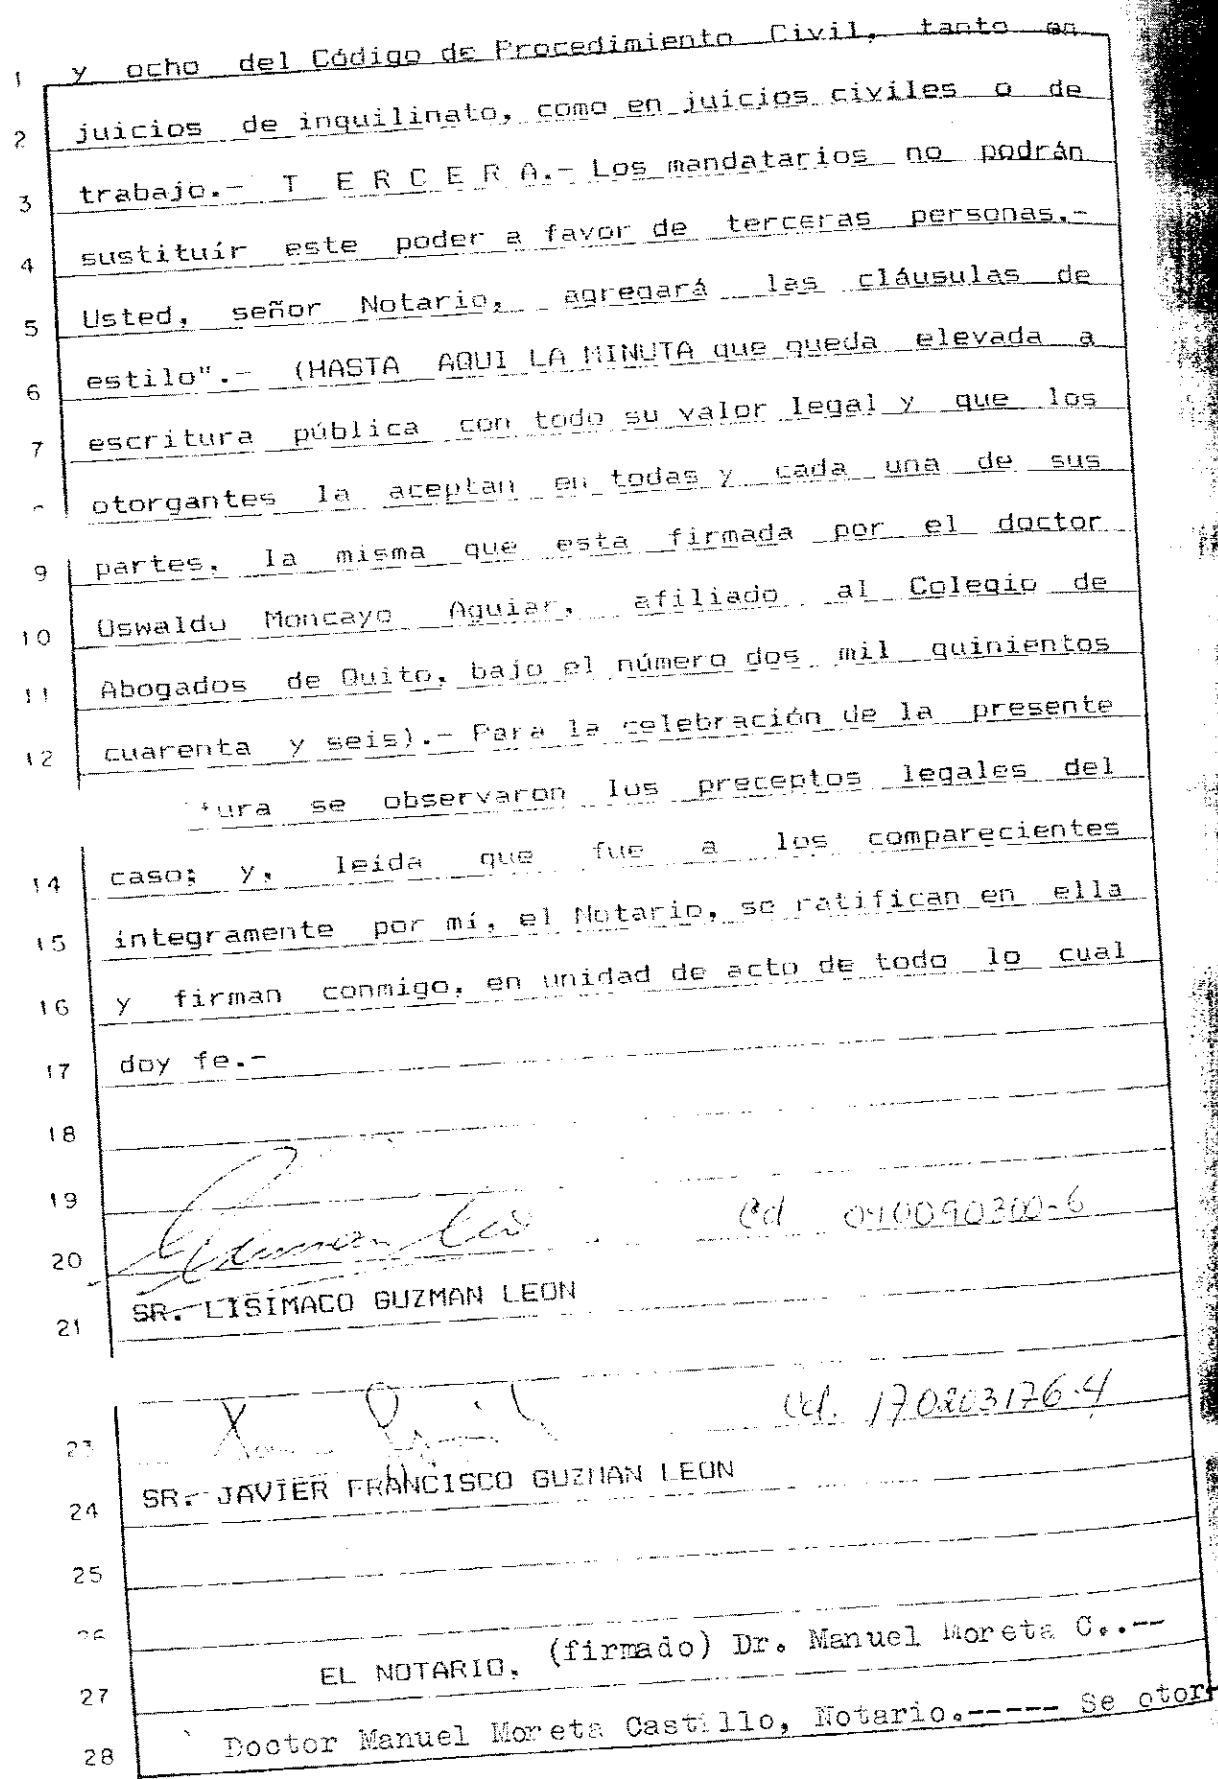 1 y ocho del Código de Procedimiento Civil, tanto en
2 juicios de inquilinato, como en juicios civiles o de
3 trabajo.- T E R C E R A.- Los mandatarios no podrán
4 sustituír este poder a favor de terceras personas.-
5 Usted, señor Notario, agregará las cláusulas de
6 estilo".- (HASTA AQUI LA MINUTA que queda elevada a
7 escritura pública con todo su valor legal y que los
otorgantes la aceptan en todas y cada una de sus
9 partes, la misma que esta firmada por el doctor
10 Oswaldo Moncayo Aguiar, afiliado al Colegio de
11 Abogados de Quito, bajo el número dos mil quinientos
12 cuarenta y seis).- Para la celebración de la presente
tura se observaron los preceptos legales del
14 caso; y, leída que fue a los comparecientes
15 integramente por mí, el Notario, se ratifican en ella
16 y firman conmigo, en unidad de acto de todo lo cual
17 doy fe.-
18
19
20 Guzman León Cd 040090300-6
21 SR. LISIMACO GUZMAN LEON
23 Cd. 170203176-4
24 SR. JAVIER FRANCISCO GUZMAN LEON
25
26
27 EL NOTARIO, (firmado) Dr. Manuel Moreta C..--
28 Doctor Manuel Moreta Castillo, Notario.----- Se otor-